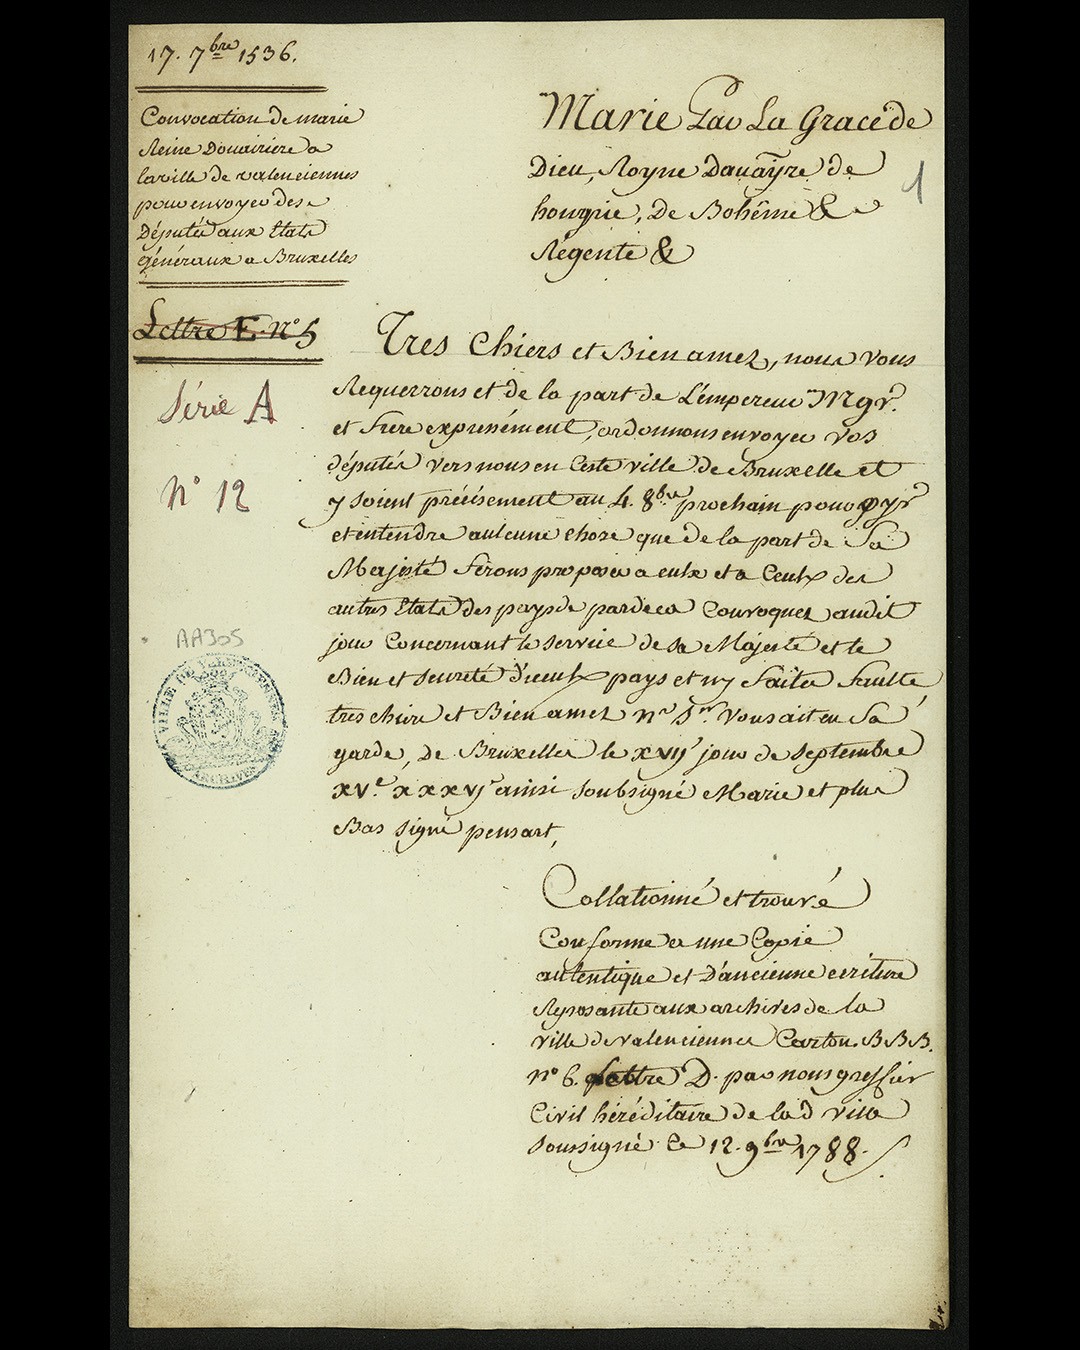 17. 7bre 1536.
Convocation de marie
Reine Douairiere a
la ville de valenciennes
pour envoyer des
Députés aux Etats
généraux a Bruxelles
Lettre E. n° 5
Série A
N° 12
AA305
VILLE DE VALENCIENNES
ARCHIVES
1
Marie Par La Grace de
Dieu, Royne Dauaÿre de
hougrie, De Bohême &
Régente &
Tres Chiers et Bien amez, nous vous
Requerrons et de la part de L'empereur Mgr.
et frere expressément, ordonnons envoyer vos
députés vers nous en Ceste ville de Bruxelle et
y soient précisément au 4. 8bre prochain pour oyr
et entendre aulcune chose que de la part de Sa
Majesté ferons proposer a eulx et a Ceulx des
autres Etats des pays de pardeca Convoquez audit
jour Concernant le service de sa Majesté et le
Bien et seureté d'iceulx pays et n'y faites faulte
tres chiere et Bien amez nre Sr. vous ait en Sa
garde, de Bruxelles le xvij jour de septembre
xvc. xxxvj ainsi soubsigné Marie et plus
Bas signé pensart,
Collationné et trouvé
Conforme a une Copie
autentique et D'ancienne ecriture
Reposante aux archives de la
ville de valenciennes Carton. B.B.B.
n° 6. Lettre D. par nous greffier
Civil héréditaire de lad ville
soussigné Ce 12. 9bre 1788.